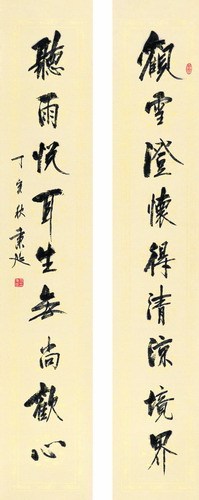 顧雪澄懷得清涼境界
聽雨悅耳生無尚歡心
丁亥秋